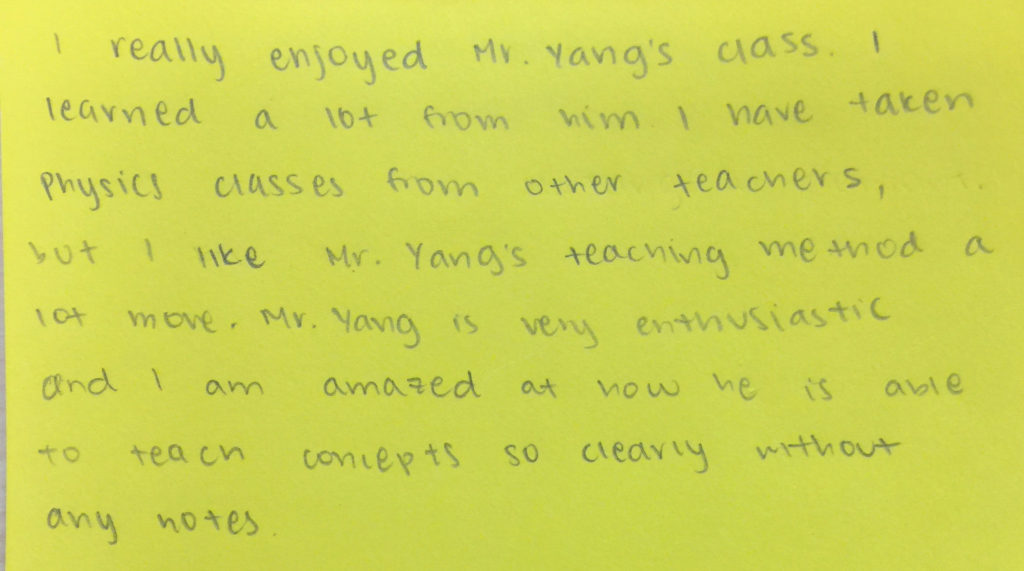 I really enjoyed Mr. Yang's class. I
learned a lot from him. I have taken
physics classes from other teachers,
but I like Mr. Yang's teaching method a
lot more. Mr. Yang is very enthusiastic
and I am amazed at how he is able
to teach concepts so clearly without
any notes.